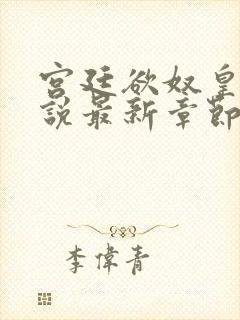 宮廷欲奴皇
說最新章節
李偉青